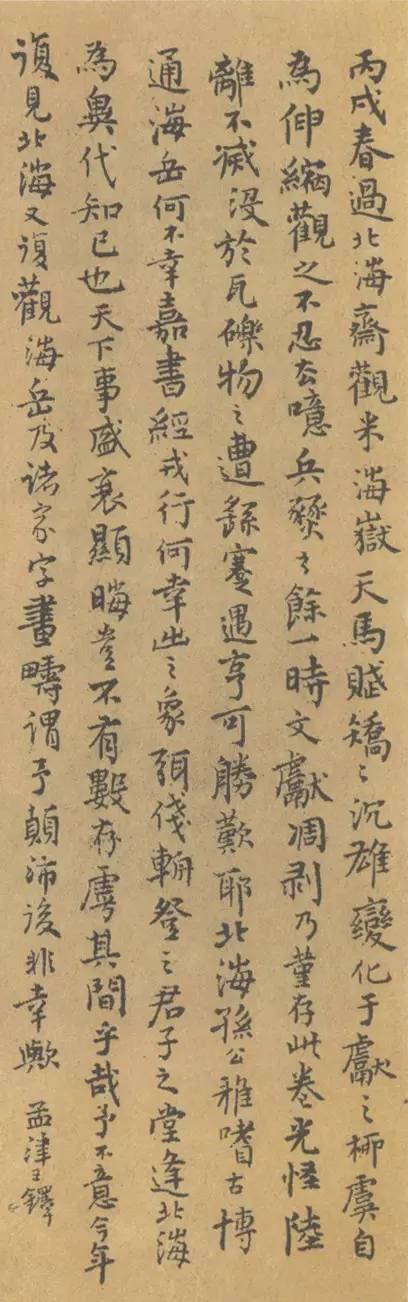 丙戌春過北海齋觀米海嶽天馬賦矯〻沉雄變化于獻之柳虞自
為伸縮觀之不忍去噫兵燹之餘一時文獻凋剥乃堇存此卷光怪陸
離不滅沒於瓦礫物之遭蹇遇亨可勝歎耶北海孫公雅嗜古博
通海岳何不幸嘉書經戎行何幸出之象弭俴輈登之君子之堂逢北海
為異代知己也天下事盛衰顯晦豈不有數存虖其間乎哉予不意今年
復見北海又復觀海岳及諸家字畫疇謂予顛沛後非幸歟 孟津王鐸